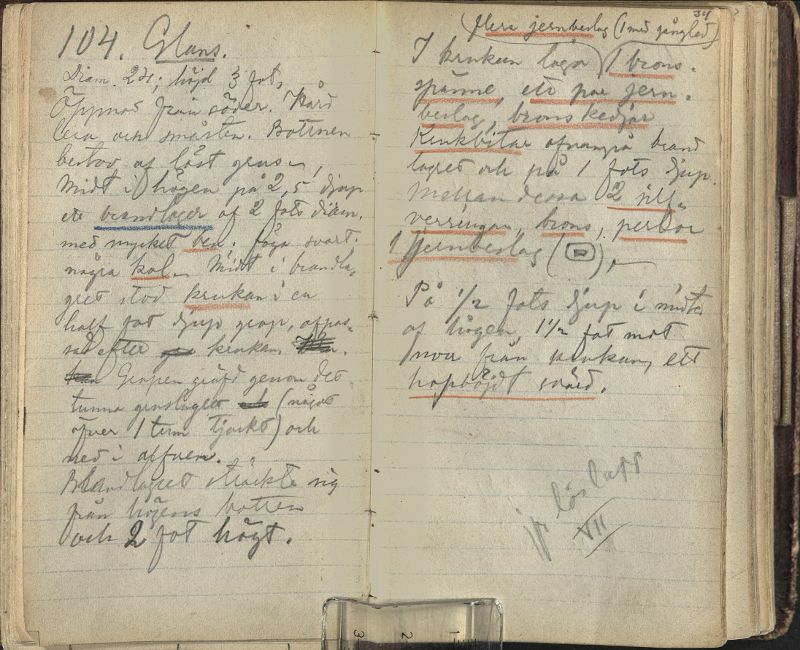 104. Glans.
Diam. 24; höjd 3 fot,
Öppnad från söder. Hård
lera och småsten. Bottnen
bestod af löst grus,
Midt i högen på 2,5 djup
ett brandlager af 2 fots diam.
med mycket ben. föga svart.
några kol. Midt i brandla-
gret stod krukan i en
half fot djup grop, afpas-
sad efter krukan.
Gropen gräfd genom det
tunna gruslagret (något
öfver 1 tum tjockt) och
ned i alfven.
Brandlagret sträckte sig
från högens botten
och 2 fot högt.
34
flera jernbeslag (1 med gångled)
I krukan lågo 1 brons-
spänne, ett par jern-
beslag, bronskedjor
Krukbitar ofvanpå brand
lagret och på 1 fots djup.
Mellan dessa 2 silf-
verringar, brons, perlor
1 jernbeslag ( ), —
På 1/2 fots djup i midten
af högen, 1 1/2 fot mot
norr från krukan, ett
hopböjdt svärd.
VII